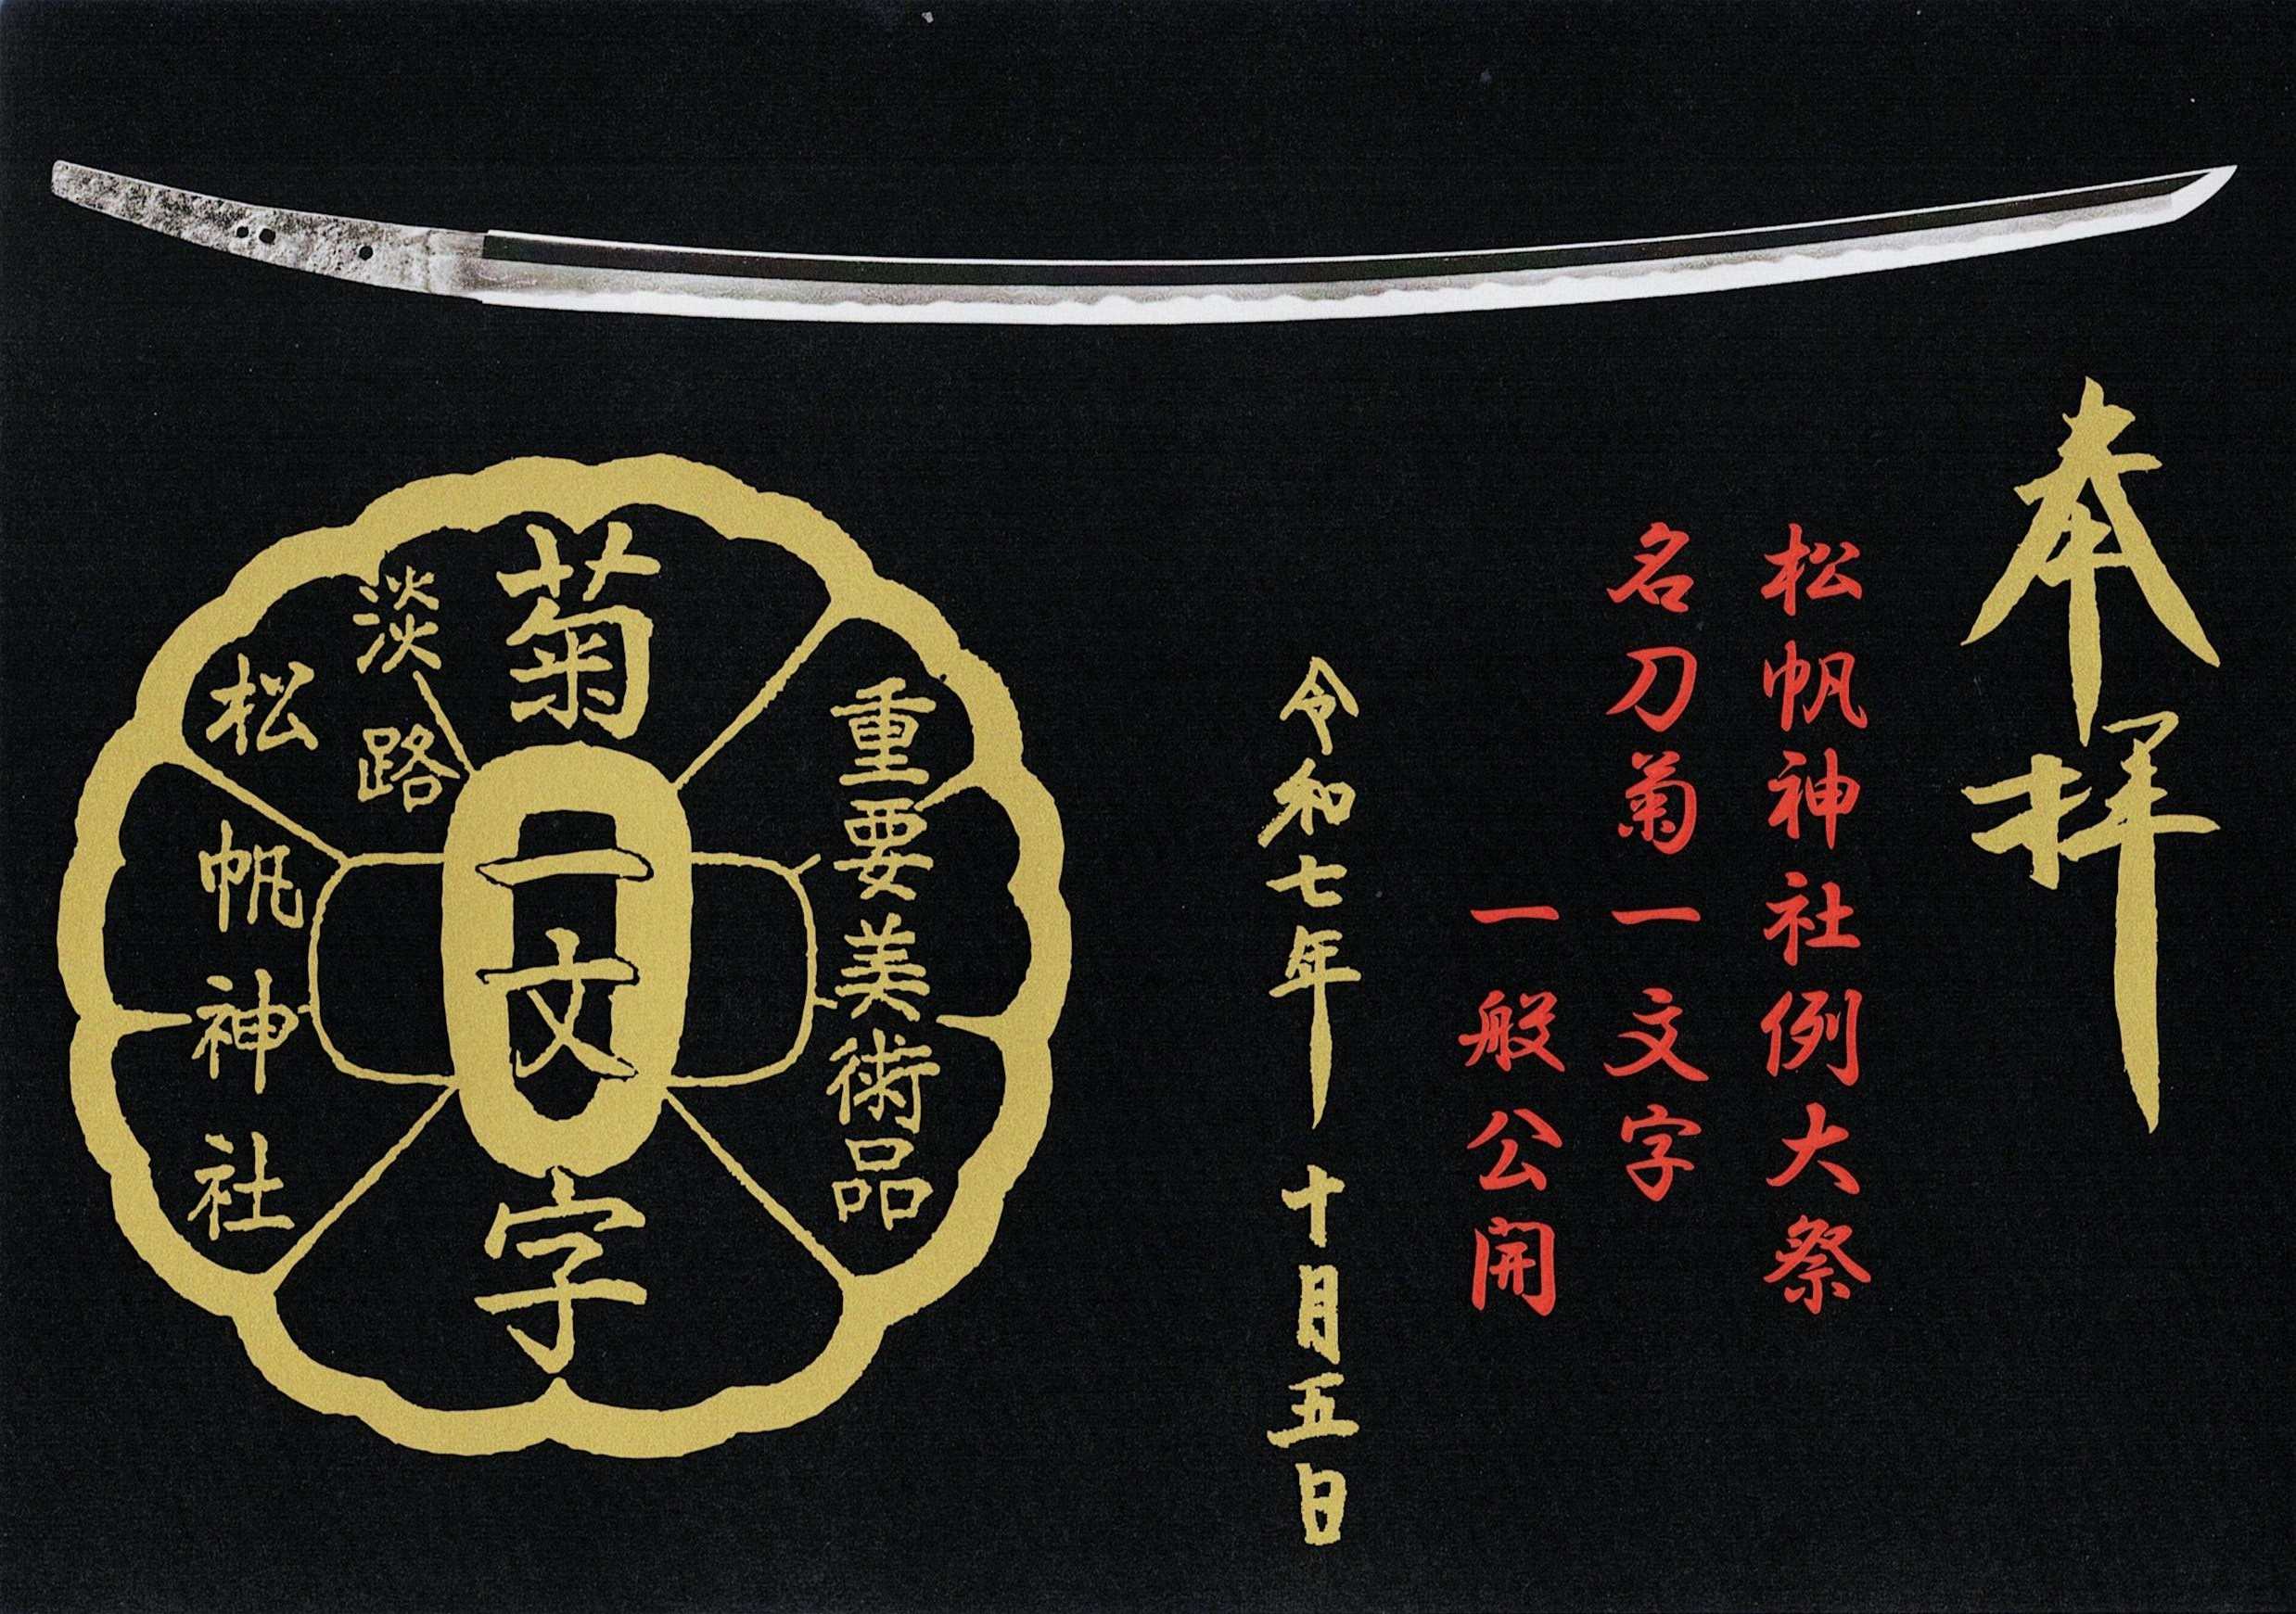 奉拝
松帆神社例大祭
名刀菊一文字
一般公開
令和七年 十月五日
重要美術品
菊一文字
淡路
松帆神社